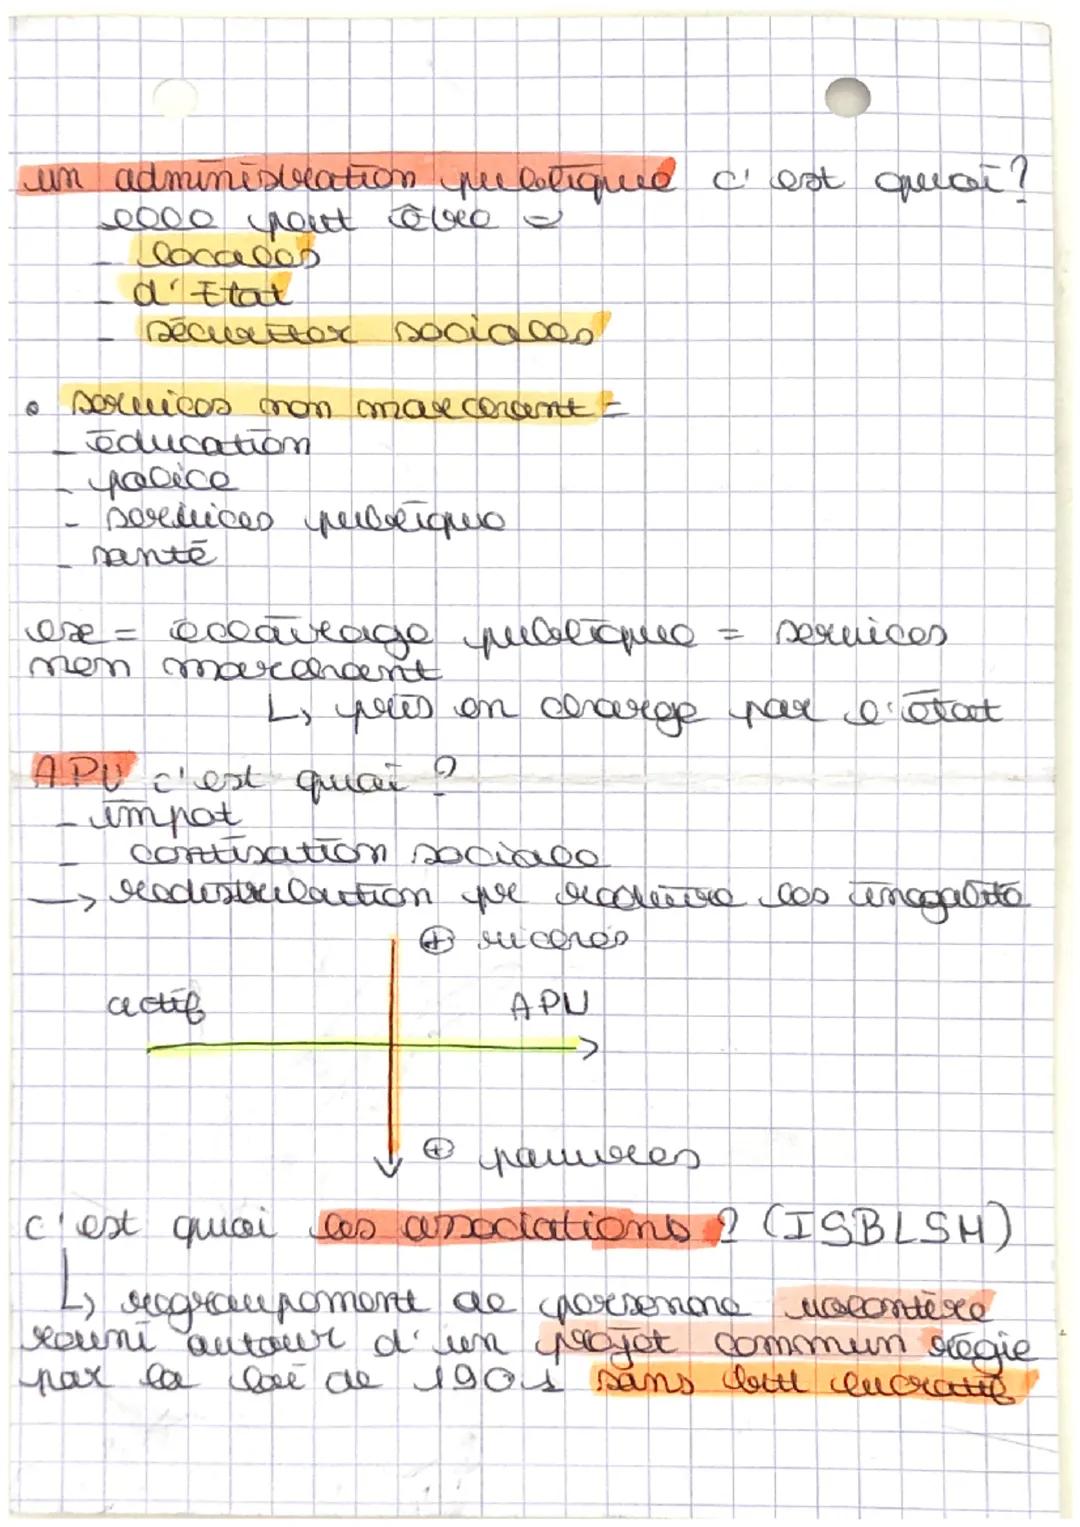 un administration publique c'est quoi?
elle peut être =
- locales
- d'Etat
- sécuriter sociales
• services non marchant =
- éducation
- police
- services publique
- santé
exe = éclairage publique = services
non marchant
↳ pris en charge par l'état
APU c'est quoi ?
- impot
- contisation sociale
→ redistrubution pr réduire les inégalité
⊕ riches
actif APU
⊕ pauvres
c'est quoi les associations ? (ISBLSM)
↳ regroupement de personne volontère
réuni autour d'un projet commun régie
par la loi de 1901 sans butt lucratif